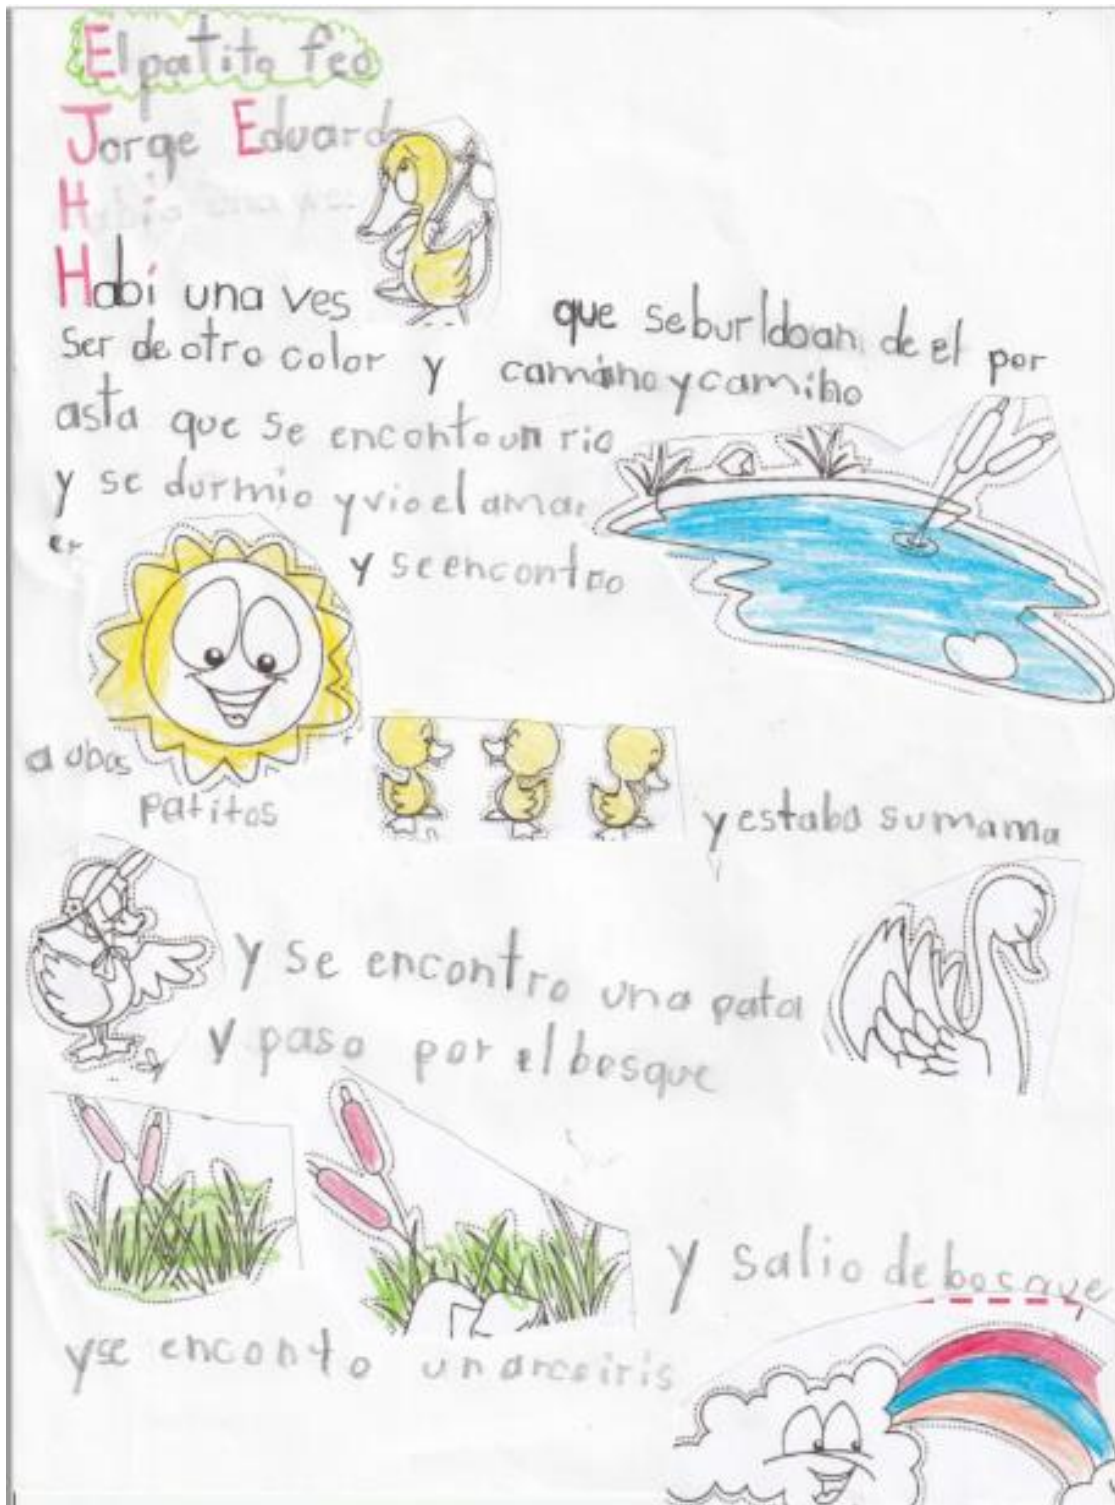 El patito feo
Jorge Eduardo
Había una ves
Habí una ves que se burldoan de el por
ser de otro color y camino y camiho
asta que se encohto un rio
y se durmio y vio el amar
er y se encontro
a obos
patitos y estaba su mama
y se encontro una pata
y paso por el bosque
y salio de bosque
y se enconto un arcoiris